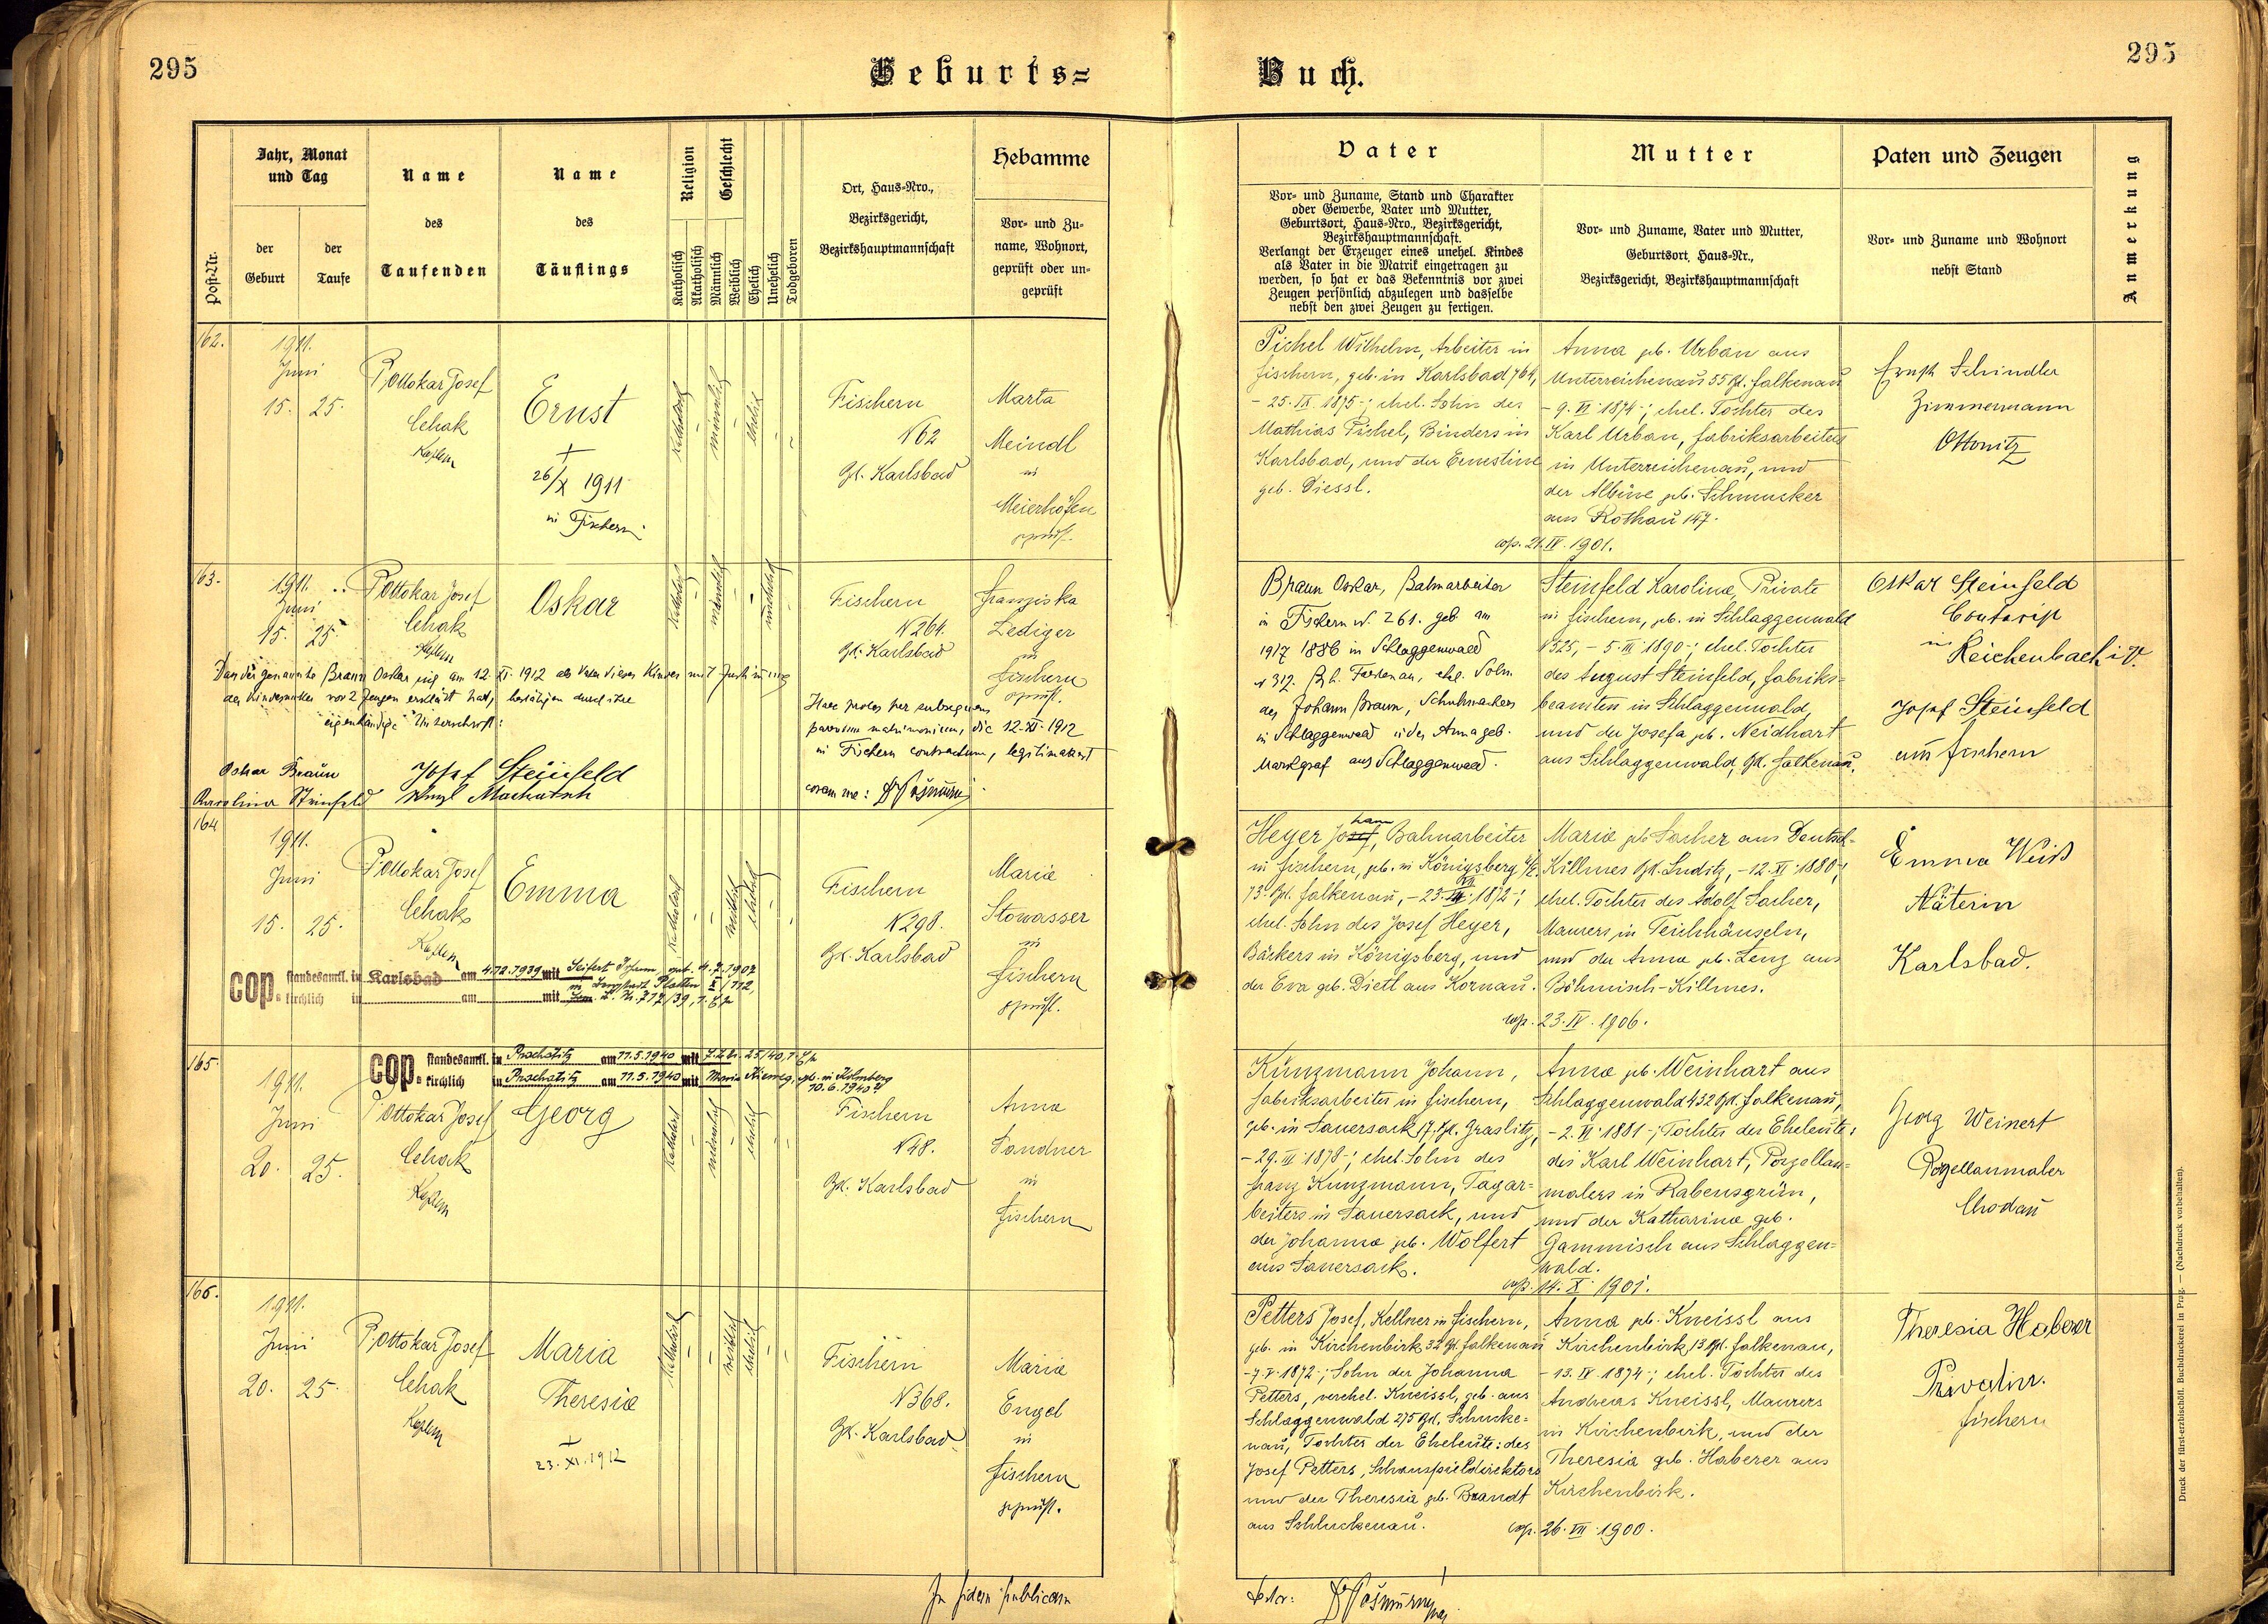 295
295
Geburts=
Buch.
Post-Nr.
Jahr, Monat
und Tag
der
Geburt
der
Taufe
Name
des
Taufenden
Name
des
Täuflings
Religion
Katholisch
Akatholisch
Geschlecht
Männlich
Weiblich
Ehelich
Unehelich
Todgeboren
Ort, Haus-Nro.,
Bezirksgericht,
Bezirkshauptmannschaft
Hebamme
Vor- und Zu-
name, Wohnort,
geprüft oder un-
geprüft
Vater
Vor- und Zuname, Stand und Charakter
oder Gewerbe, Vater und Mutter,
Geburtsort, Haus-Nro., Bezirksgericht,
Bezirkshauptmannschaft.
Verlangt der Erzeuger eines unehel. Kindes
als Vater in die Matrik eingetragen zu
werden, so hat er das Bekenntnis vor zwei
Zeugen persönlich abzulegen und dasselbe
nebst den zwei Zeugen zu fertigen.
Mutter
Vor- und Zuname, Vater und Mutter,
Geburtsort, Haus-Nr.,
Bezirksgericht, Bezirkshauptmannschaft
Paten und Zeugen
Vor- und Zuname und Wohnort
nebst Stand
Anmerkung
162.
1911.
Juni
15. 25.
P. Ottokar Josef
Cehak
Kaplan
Ernst
+
26/X 1911
in Fischern
katholisch
männlich
ehelich
Fischern
N 62
Bk. Karlsbad
Marta
Meindl
in
Meierhöfen
geprüft.
Pichel Wilhelm, Arbeiter in
Fischern, geb. in Karlsbad 764,
1875-; ehel. Sohn des
Mathias Pichel, Binders in
Karlsbad, und der Ernestine
geb. Diessl.
Anna geb. Urban aus
Unterreichenau 55 Bk. Falkenau
- 9. VI. 1874-; ehel. Tochter des
Karl Urban, Fabriksarbeiters
in Unterreichenau, und
der Albine geb. Schmucker
aus Rothau 147.
cop. 21. IV. 1901.
Ernst Schindler
Zimmermann
Ottonitz
163.
1911.
Juni
15. 25.
P. Ottokar Josef
Cehak
Kaplan
Oskar
katholisch
männlich
unehelich
Fischern
N 264.
Bk. Karlsbad
Franziska
Lediger
in
Fischern
geprüft.
Daß der genannte Braun Oskar sich am 12. XI. 1912 als Vater dieses Kindes mit Zustimmung
der Kindesmutter vor 2 Zeugen erklärt hat, bestätigen durch ihre
eigenhändige Unterschrift:
Oskar Braun
Karolina Steinfeld
Josef Steinfeld
Wenzl Machatsch
Haec proles per subsequens
parentum matrimonium, die 12. XI. 1912
in Fischern contractum, legitimata est
coram me:
Braun Oskar, Bahnarbeiter
in Fischern N. 261. geb. am
1886 in Schlaggenwald
N 312 Bk. Falkenau, ehel. Sohn
des Johann Braun, Schuhmachers
in Schlaggenwald u. der Anna geb.
Markgraf aus Schlaggenwald.
Steinfeld Karolina, Private
in Fischern, geb. in Schlaggenwald
N 325, - 5. III. 1890-; ehel. Tochter
des August Steinfeld, Fabriks-
beamten in Schlaggenwald,
und der Josefa geb. Neidhart
aus Schlaggenwald, Bk. Falkenau.
Oskar Steinfeld
Contorist
in
Reichenbach i. V.
Josef Steinfeld
aus Fischern
164
1911.
Juni
15. 25.
P. Ottokar Josef
Cehak
Kaplan
Emma
katholisch
weiblich
ehelich
Fischern
N 298.
Bk. Karlsbad
Maria
Stowasser
in
Fischern
geprüft.
cop. standesamtl. in Karlsbad am 4.12.1939 mit Seifert Johann, geb. 4.7.1907
in Bergstadt Platten
kirchlich in am mit
Heyer Johann, Bahnarbeiter
in Fischern, geb. in Königsberg a/E.
73 Bk. Falkenau, - 23. 1872-;
ehel. Sohn des Josef Heyer,
Bäckers in Königsberg, und
der Eva geb. Dietl aus Kornau.
Maria geb. Sacher aus Deutsch-
Killmes Bk. Luditz, - 12. XI. 1880-;
ehel. Tochter des Adolf Sacher,
Maurers in Teichhäuseln,
und der Anna geb. Lenz aus
Böhmisch-Killmes.
cop. 23. IV. 1906.
Emma Weiß
Näterin
Karlsbad.
165.
cop. standesamtl. in Puschatitz am 11.5.1940 mit
kirchlich in Puschatitz am 11.5.1940 mit Maria
1911.
Juni
20. 25.
P. Ottokar Josef
Cehak
Kaplan
Georg
katholisch
männlich
ehelich
Fischern
N 48.
Bk. Karlsbad
Anna
Sandner
in
Fischern
Kunzmann Johann,
Fabriksarbeiter in Fischern,
geb. in Sauersack 17, Bk. Graslitz,
- 29. III. 1878-; ehel. Sohn des
Franz Kunzmann, Tagar-
beiters in Sauersack, und
der Johanna geb. Wolfert
aus Sauersack.
Anna geb. Weinhart aus
Schlaggenwald 432 Bk. Falkenau,
- 2. VI. 1881-; Tochter der Eheleute:
des Karl Weinhart, Porzellan-
malers in Rabensgrün,
und der Katharina geb.
Gammisch aus Schlaggen-
wald.
cop. 14. X. 1901.
Georg Weinert
Pozellanmaler
Chodau
166.
1911.
Juni
20. 25.
P. Ottokar Josef
Cehak
Kaplan
Maria
Theresia
+
23. XI. 1912
katholisch
weiblich
ehelich
Fischern
N 368.
Bk. Karlsbad
Maria
Engel
in
Fischern
geprüft.
Petters Josef, Kellner in Fischern,
geb. in Kirchenbirk 32 Bk. Falkenau
- 7. V. 1872-; Sohn der Johanna
Petters, verehel. Kneissl, geb. aus
Schlaggenwald 275 Bk. Schucke-
nau, Tochter der Eheleute: des
Josef Petters, Schauspieldirektors
und der Theresia geb. Brandt
aus Schluckenau.
Anna geb. Kneissl aus
Kirchenbirk 13 Bk. Falkenau,
- 13. IV. 1874-; ehel. Tochter des
Andreas Kneissl, Maurers
in Kirchenbirk, und der
Theresia geb. Haberer aus
Kirchenbirk.
cop. 26. VII. 1900.
Theresia Haberer
Privatier.
Fischern
In fidem publicam
Druck der fürst-erzbischöfl. Buchdruckerei in Prag. — (Nachdruck vorbehalten).